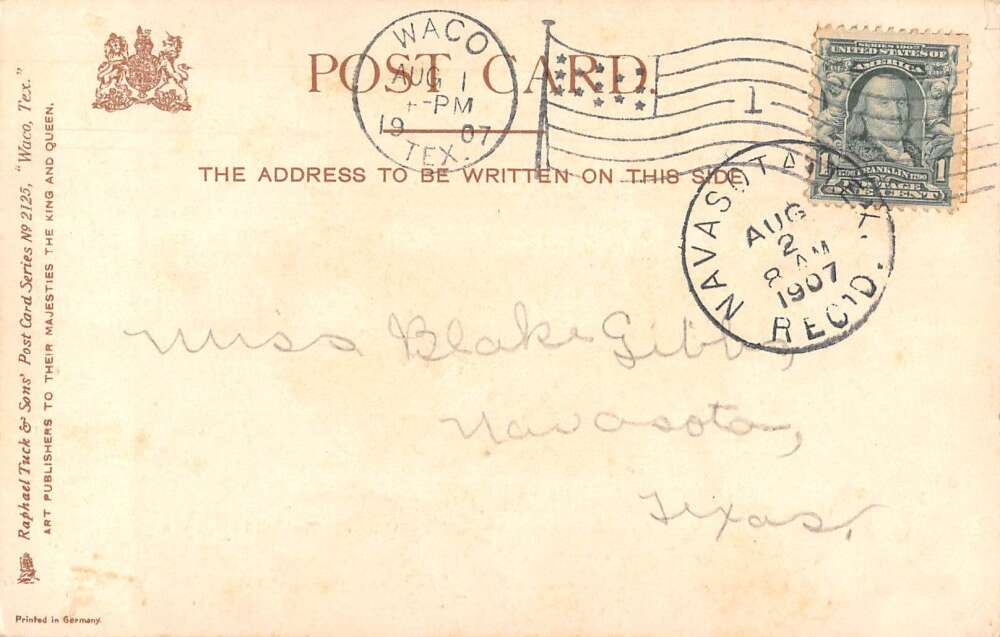 POST CARD.
THE ADDRESS TO BE WRITTEN ON THIS SIDE
WACO
AUG 1
PM
19 07
TEX.
1
SERIES 1902
UNITED STATES OF
AMERICA
1 FRANKLIN 1
POSTAGE
ONE CENT
NAVASOTA
AUG
2
8 AM
1907
REC'D.
Miss Blake Gibbs,
Navasota,
Texas,
Raphael Tuck & Sons' Post Card Series Nº 2125, "Waco, Tex."
ART PUBLISHERS TO THEIR MAJESTIES THE KING AND QUEEN.
Printed in Germany.